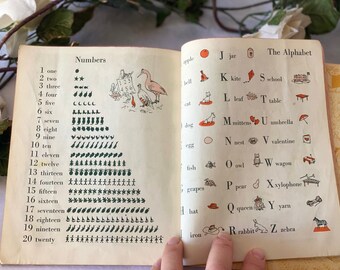 Numbers
1 one
2 two
3 three
4 four
5 five
6 six
7 seven
8 eight
9 nine
10 ten
11 eleven
12 twelve
13 thirteen
14 fourteen
15 fifteen
16 sixteen
17 seventeen
18 eighteen
19 nineteen
20 twenty
The Alphabet
apple J jar
K kite S school
L leaf T table
M mittens U umbrella
N nest V valentine
fish O owl W wagon
grapes P pear X xylophone
hat Q queen Y yarn
iron R rabbit Z zebra